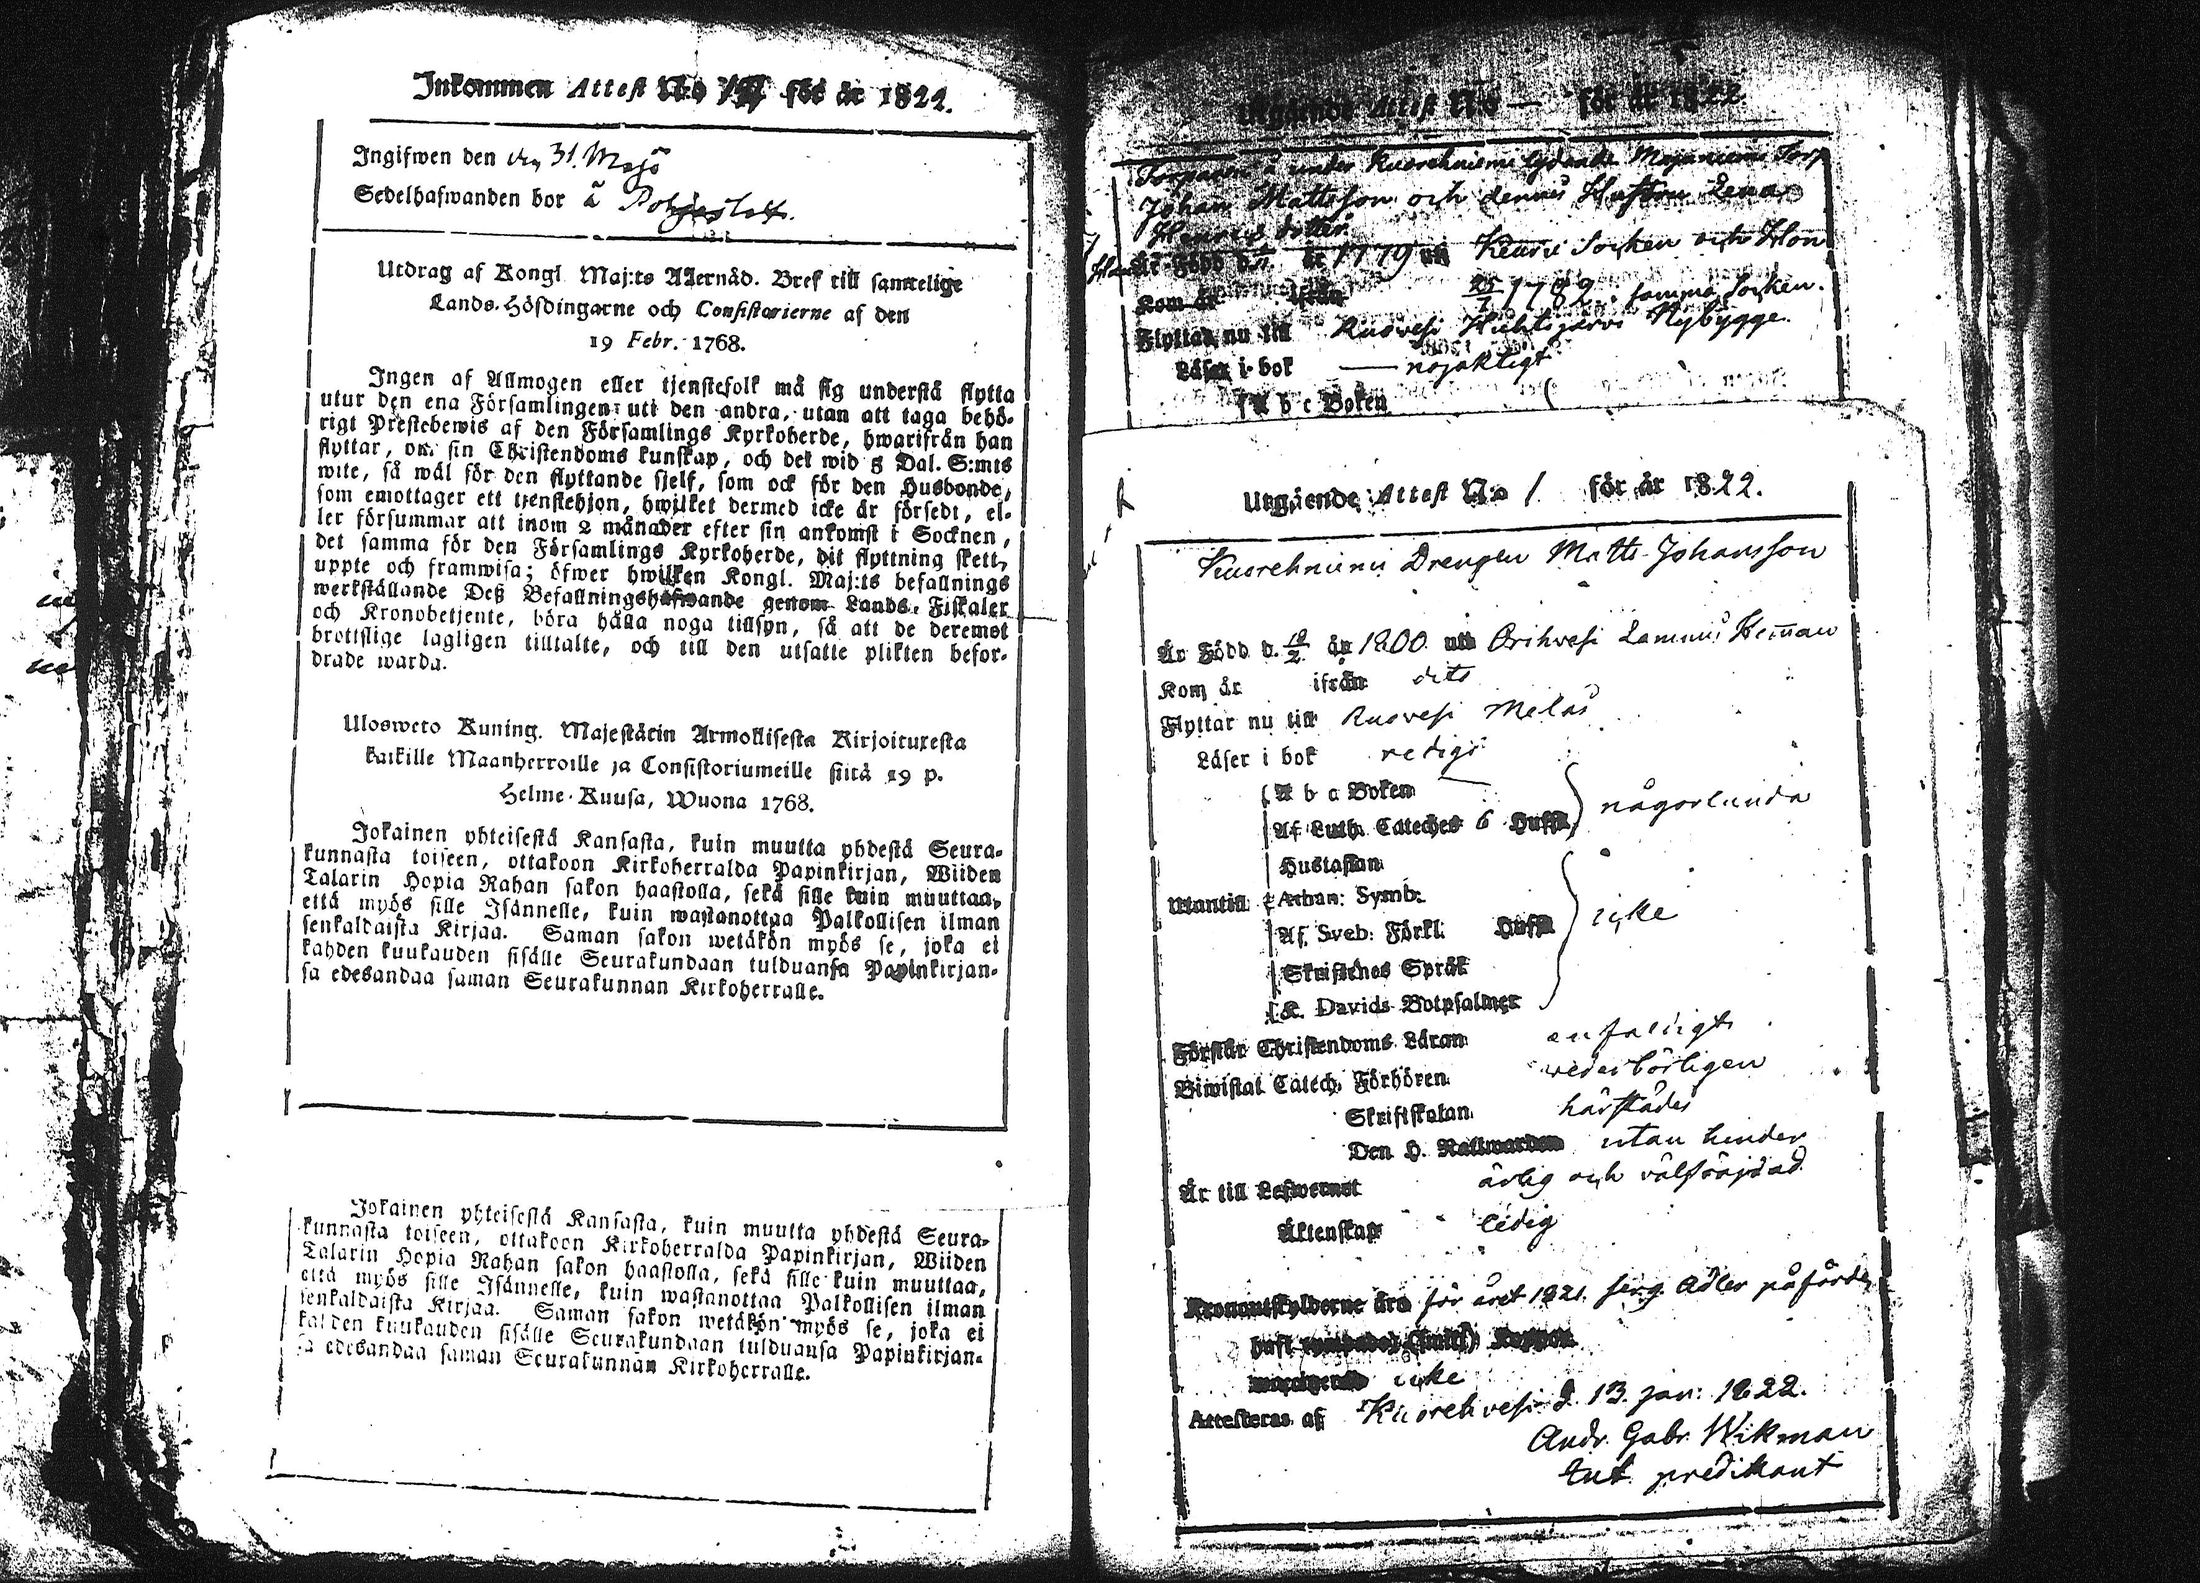 Inkommen Attest No för år 1822.
Ingifwen den 31. Maji
Sedelhafwanden bor å
Utdrag af Kongl. Maj:ts Allernåd. Bref till samtelige
Lands-Höfdingarne och Consistorierne af den
19 Febr. 1768.
Ingen af Allmogen eller tjenstefolk må sig understå flytta
utur den ena Församlingen uti den andra, utan att taga behö-
rigt Prestebewis af den Församlings Kyrkoherde, hwarifrån han
flyttar, om sin Christendoms kunskap, och det wid 5 Dal. S:mts
wite, så wäl för den flyttande sjelf, som ock för den Husbonde,
som emottager ett tjenstehjon, hwilket dermed icke är försedt, el-
ler försummar att inom 2 månader efter sin ankomst i Socknen,
det samma för den Församlings Kyrkoherde, dit flyttning skett,
uppte och framwisa; öfwer hwilken Kongl. Maj:ts befallnings
werkställande Deß Befallningshafwande genom Lands-Fiskaler
och Kronobetjente, böra hålla noga tillsyn, så att de deremot
brottslige lagligen tilltalte, och till den utsatte plikten befor-
drade warda.
Ulosweto Kuning. Majestätin Armollisesta Kirjoituxesta
kaikille Maanherroille ja Consistoriumeille siitä 19 p.
Helme-Kuusa, Wuona 1768.
Jokainen yhteisestä Kansasta, kuin muutta yhdestä Seura-
kunnasta toiseen, ottakoon Kirkoherralda Papinkirjan, Wiiden
Talarin Hopia Rahan sakon haastolla, sekä sille kuin muuttaa,
että myös sille Isännelle, kuin wastanottaa Palkollisen ilman
senkaldaista Kirjaa. Saman sakon wetäkön myös se, joka ei
kahden kuukauden sisälle Seurakundaan tulduansa Papinkirjan-
sa edesandaa saman Seurakunnan Kirkoherralle.
Jokainen yhteisestä Kansasta, kuin muutta yhdestä Seura-
kunnasta toiseen, ottakoon Kirkoherralda Papinkirjan, Wiiden
Talarin Hopia Rahan sakon haastolla, sekä sille kuin muuttaa,
että myös sille Isännelle, kuin wastanottaa Palkollisen ilman
senkaldaista Kirjaa. Saman sakon wetäkön myös se, joka ei
kahden kuukauden sisälle Seurakundaan tulduansa Papinkirjan-
sa edesandaa saman Seurakunnan Kirkoherralle.
Utgående Attest No — för år 1822.
Torparen å under Kuorehniemi lydande Majaniemi Torp
Johan Mattsson och dennes Hustru Lena
Henrics dotter
Är Född d. år 1779 uti Keuru Socken och Hon
Kom år ifrån 25/7 1782. samma Socken.
Flyttar nu till Ruovesi Huhtijärvi Nybygge.
Läser i bok — nöjaktigt
A b c Boken
Utgående Attest No 1 för år 1822.
Kuorehniemi Drengen Matts Johansson
Är Född d. 19/2 år 1800 uti Orihvesi Hemman
Kom år ifrån dito
Flyttar nu till Ruovesi Melas
Läser i bok redigt
A b c Boken
Af Luth. Cateches 6 Hufst. någorlunda
Hustaflan
Utantill Athan: Symb:
Af Sveb: Förkl. Hufst. icke
Skriftenes Språk
K. Davids Botpsalmer
Förstår Christendoms Läran enfaldigt
Biwistat Catech. Förhören wederbörligen
Skriftskolan härstädes
Den H. Nattwarden utan hinder
Är till Lefwernet ärlig och välfräjdad
Äktenskap ledig
Kronoutskylderne äro för året 1821. Adler påförde
haft Koppor
icke
Attesteras af Kuorehvesi d. 13. jan: 1822.
Andr. Gabr. Wikman
predikant